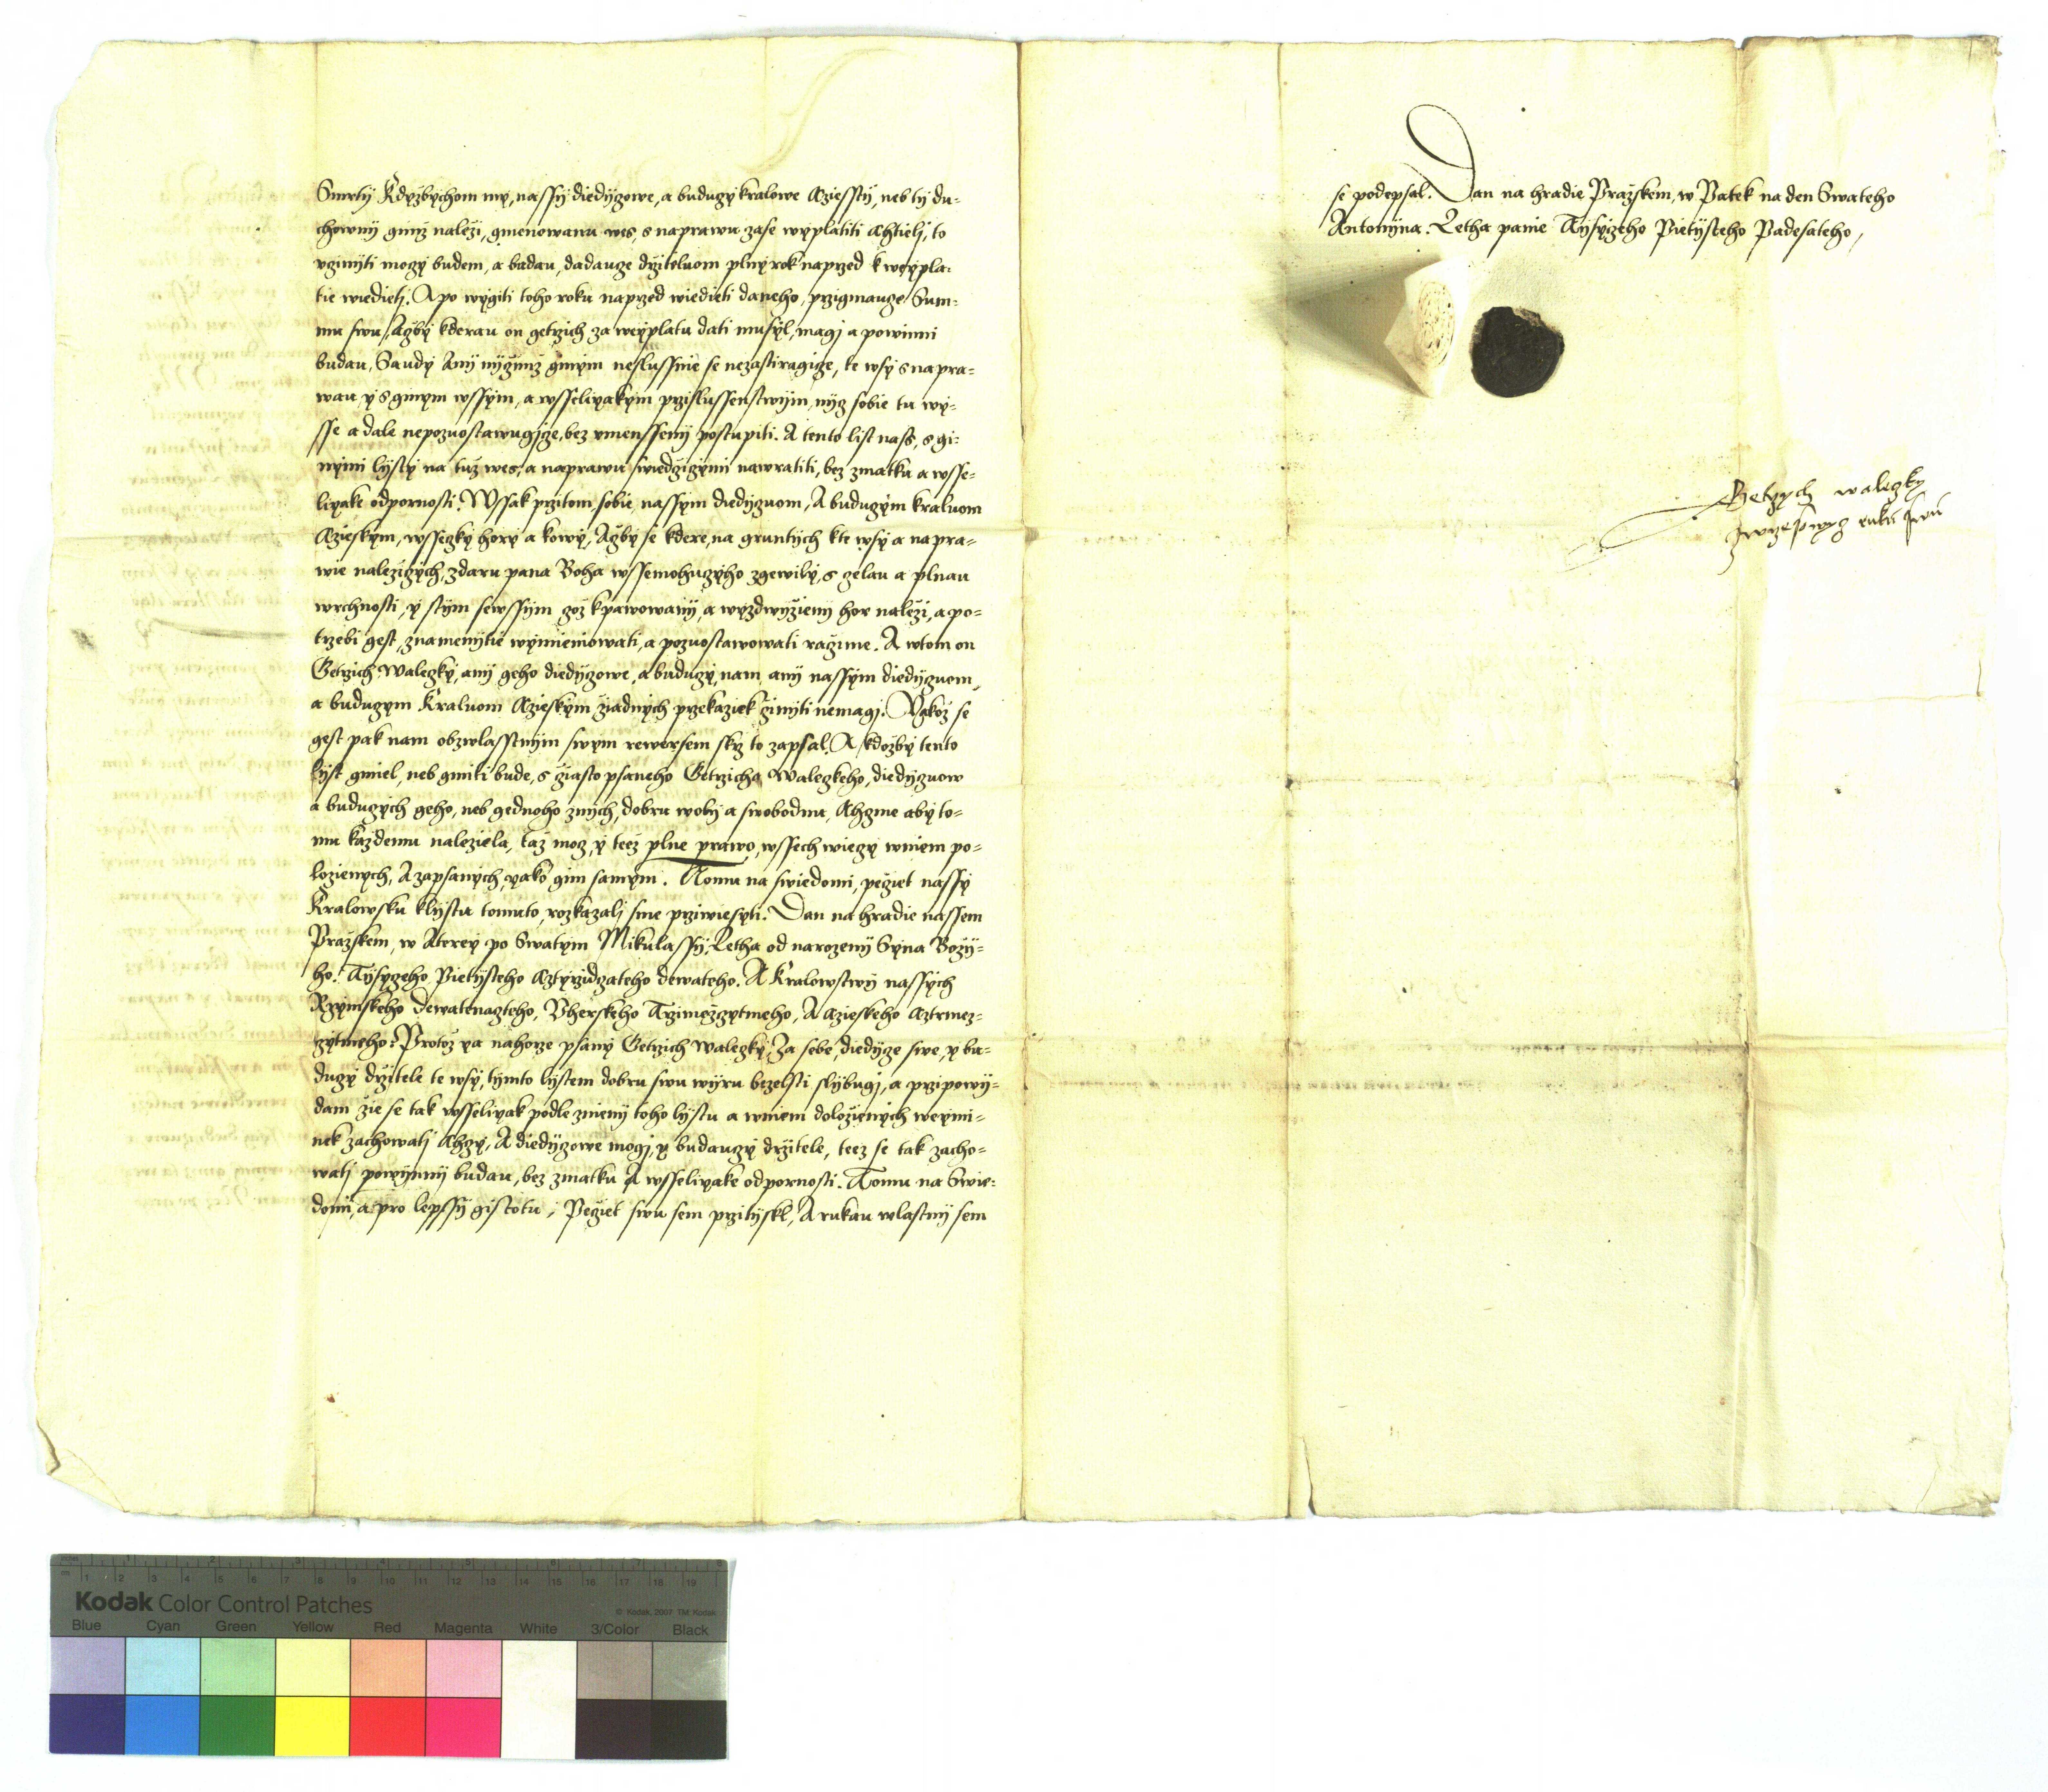 Smrtý Kdyžbychom mý, nassý diedyczowe, a buduczý kralowe Cziessty, neb tý du-
chowný gimž naleži, gmenowanu wes, s naprawu zase wyplatiti chtielj, to
vcziniti moczý budem, a budau, dadaucze držiteluom plný rok naprzed k weýpla-
tie wiedieti. A po wygiti toho roku naprzed wiedieti daneho, przigmaucze Sum-
mu swu, Aczby kderau on Getrzich za weyplatu dati musyl, magj a powinni
budau, Saudý Aný nyczimž ginym neslussnie se nezastiragicze, te wsý s napra-
wau, ý s ginym wssým, a wsselyakym przislussenstwim, nycz sobie tu wý-
sse a dale nepozuostawugjcze, bez vmenssený postupiti. A tento list nass, s gi-
nymi lysty na tuž wes, a naprawu swiedczyczymi nawratiti, bez zmatku a wsse-
lyake odpornosti. Wssak przitom sobie, nassým diedyczuom, A buduczým kraluom
Czieským, wsseczký horý a kowý, Aczbý se kdere, na gruntých k te wsý a napra-
wie naležiczých, z daru pana Boha wssemohuczýho zgewilý, s czelau a plnau
wrchnosti, ý s tým sewssým, czož k pawowaný, a wyzdwyžiený hor naleži, a po-
trzebi gest, znamenytie wýmieniowati, a pozuostawowati ražime. A wtom on
Getrzich Waleczký, aný geho diedyczowe, a buduczý, nam, aný nassým diedyczuom,
a buduczým Kraluom Czieským žiadných przekaziek cziniti nemagj. Yakož se
gest pak nam obzwlasstným swým rewersem skrz to zapsal. A kdožbý tento
lyst gmiel, neb gmiti bude, s cziasto psaneho Getrzicha Waleczkeho, diedyczuow
a buduczých geho, neb gednoho z nich, dobru wolý a swobodnu, Chczme abý to-
mu každemu naležiela, taž mocz, ý teež plne prawo, wssech wieczý wniem po-
loženych, A zapsaných, yako gim samým. Tomu na swiedomi, pecziet nassý
Kralowsku klystu tomuto, rozkazalj sme prziwiesyti. Dan na hradie nassem
Pražskem, w Aterey po Swatým Mikulassý, Letha od narozený Syna Božý-
ho. Tysyczeho Pietisteho Cztyrzidczateho dewateho. A Kralowstwý nassých
Rzýmskeho dewatenaczteho, Vherskeho Trzimeczýtmeho, A Czieskeho Cztrmecz-
czýtmeho. Protož ya nahorze psaný Getrzich Waleczký, Za sebe, diedycze swe, ý bu-
duczý držitele te wsý, tymto lystem dobru swu wýru bezelsti slybugj, a przipowý-
dam žie se tak wsselyak podle zniený toho lystu a wniem doložiených weymi-
nek zachowatj Chczý, A diedyczowe mogj, ý budauczý držitele, teez se tak zacho-
watj powynny budau, bez zmatku A wsselyake odpornosti. Tomu na Swie-
domi, a pro lepssý gistotu, Pecziet swu sem przityskl, A rukau wlastný sem
se podepsal. Dan na hradie Pražskem, w Patek na den Swateho
Antonyna. Letha panie Tysyczeho Pietysteho Padesateho,
Getrzych waleczky
rukú swú
Kodak Color Control Patches
© Kodak, 2007 TM: Kodak
Blue Cyan Green Yellow Red Magenta White 3/Color Black